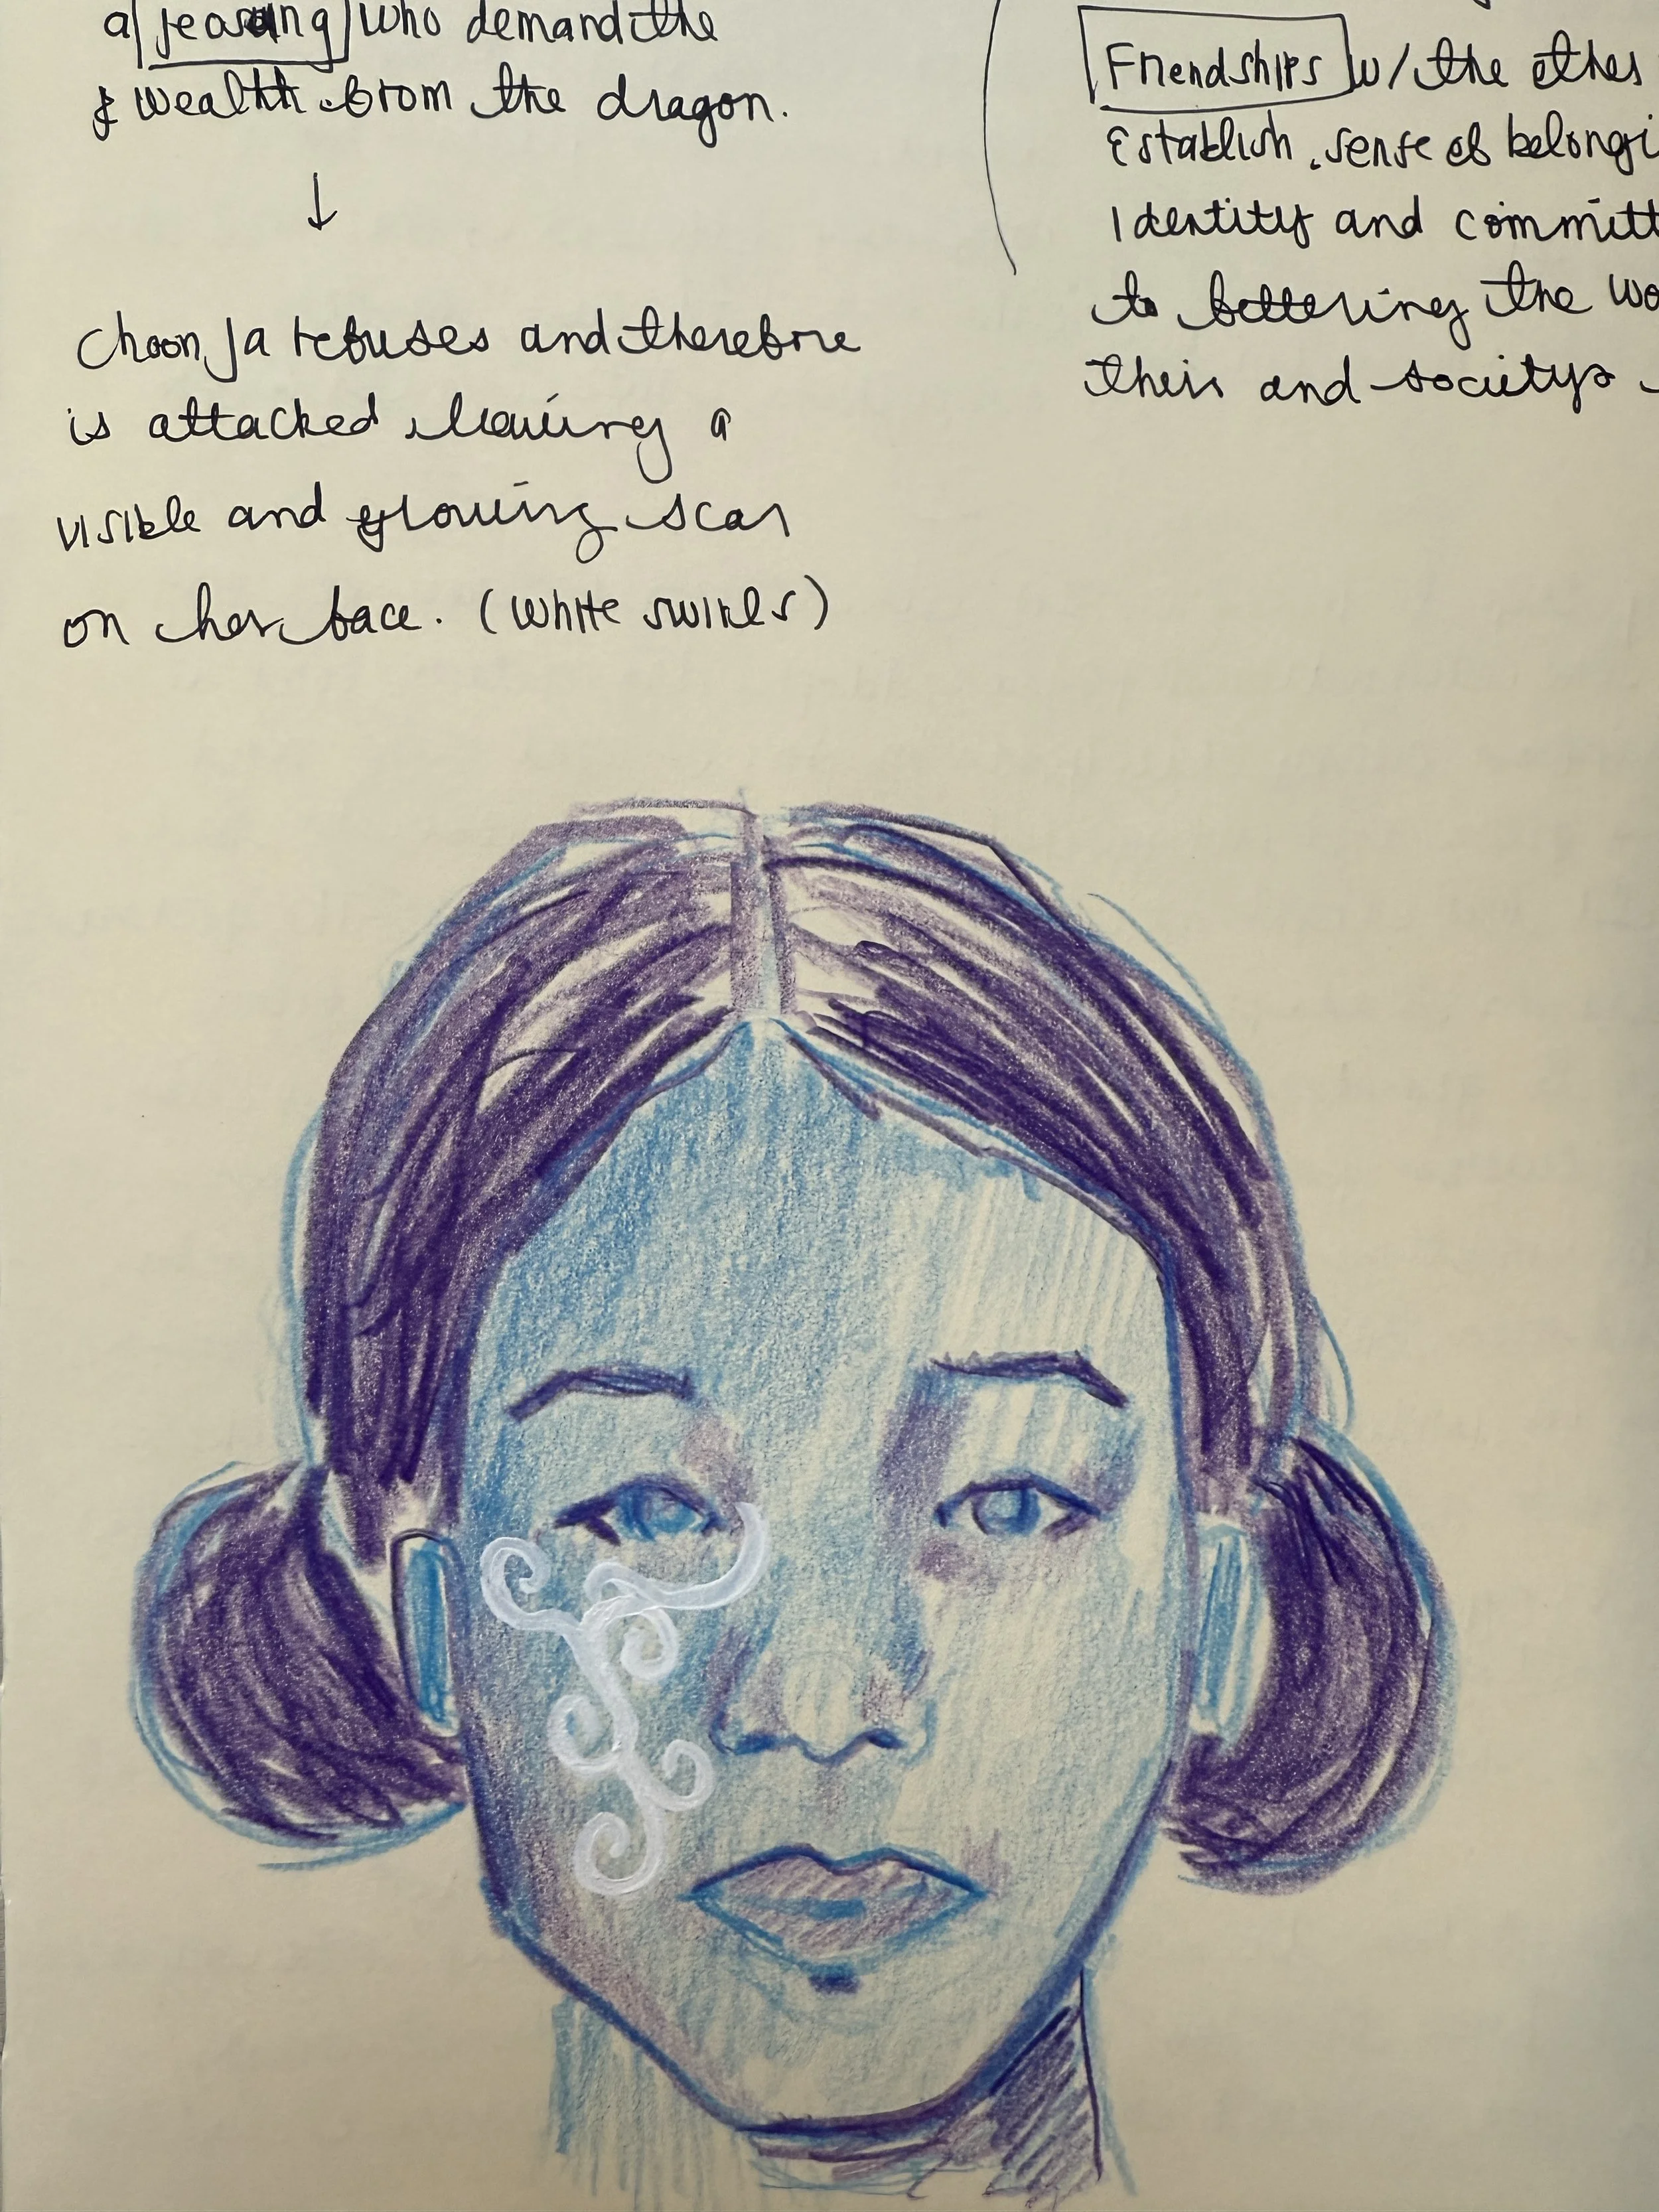 a who demand the
& wealth from the dragon.
↓
Choon Ja refuses and therefore
is attacked leaving a
visible and glowing scar
on her face. (white swirls)
Friendships w/ the other
establish sense of belongi
identity and committ
to bettering the wo
theirs and society's